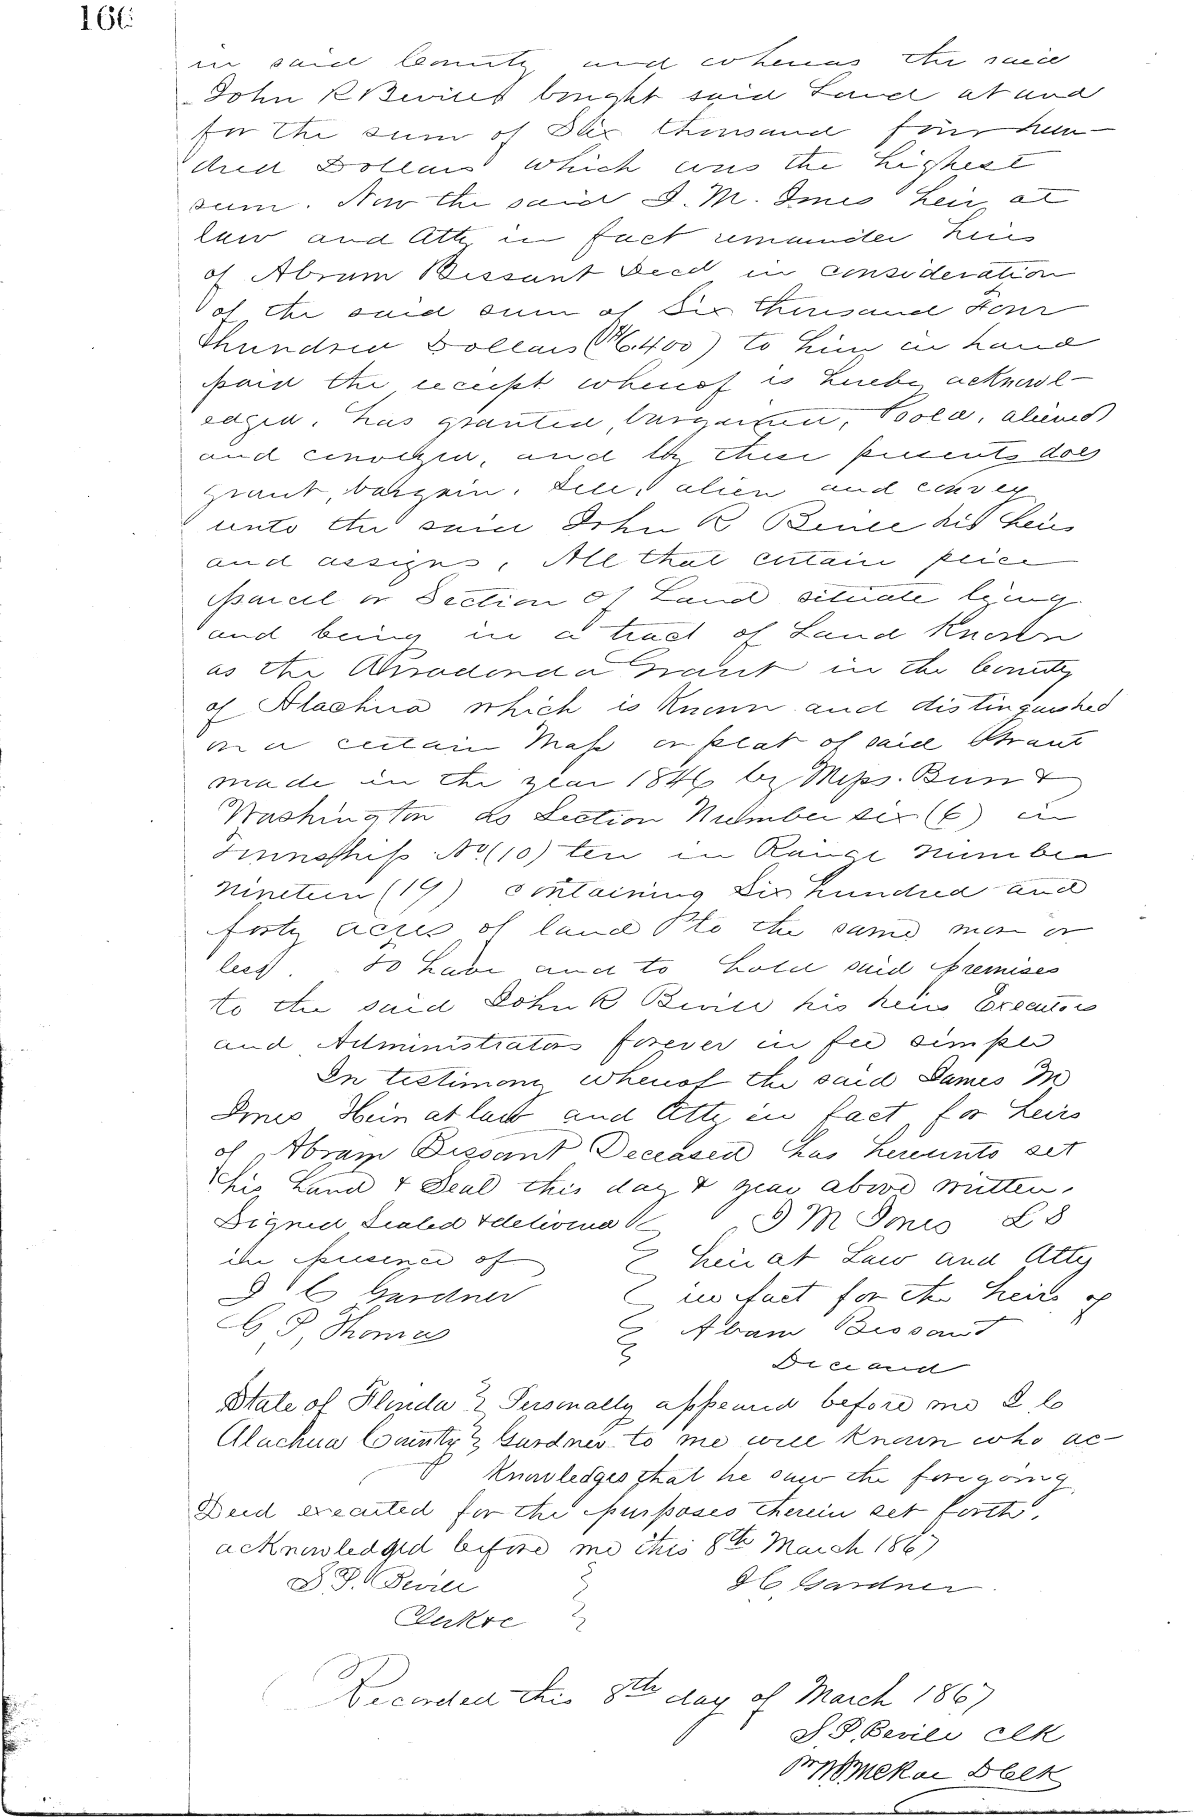 166
in said County and whereas the said
John R Bevill bought said Land at and
for the sum of Six thousand four hun-
dred Dollars which was the highest
sum. Now the said J. M. Jones heir at
law and Atty in fact remainder heirs
of Abram Bessant Decd in consideration
of the said sum of Six thousand Four
Hundred Dollars ($6.400) to him in hand
paid the receipt whereof is hereby acknowl-
edged, has granted, bargained, sold, aliened
and conveyed, and by these presents does
grant, bargain, sell, alien and convey
unto the said John R Bevill his heirs
and assigns, All that certain peice
parcel or Section of Land situate lying
and being in a tract of Land Known
as the Arradonda Grant in the County
of Alachua which is Known and distinguished
on a certain Map or plat of said Grant
made in the year 1846 by Mess. Burr &
Washington as Section Number six (6) in
Township No (10) ten in Range number
nineteen (19) containing Six hundred and
forty acres of land to the same more or
less. To have and to hold said premises
to the said John R Bevill his heirs Executors
and Administrators forever in fee simple
In testimony whereof the said James M
Jones Heir at law and Atty in fact for heirs
of Abram Bessant Deceased has hereunto set
his hand & Seal this day & year above written.
Signed Sealed & delivered J M Jones L S
in presence of heir at Law and Atty
J C Gardner in fact for the heirs of
G. P. Thomas Abram Bessant
Deceased
State of Florida Personally appeared before me J C
Alachua County Gardner to me well known who ac-
knowledges that he saw the foregoing
Deed executed for the purposes therein set forth.
acknowledged before me this 8th March 1867
S. P. Bevill J C, Gardner
Clerk
Recorded this 8th day of March 1867
S. P. Bevill clk
McRae D Clk